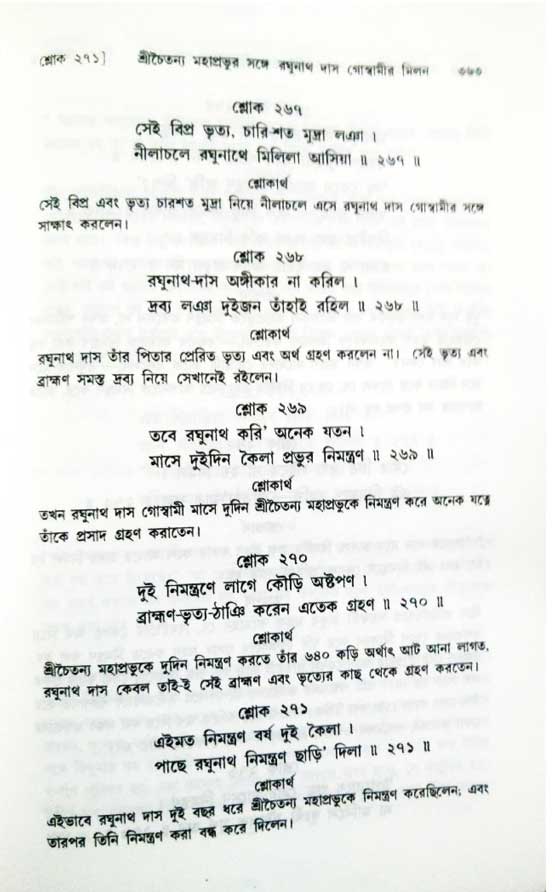 শ্লোক ২৭১] শ্রীচৈতন্য মহাপ্রভুর সঙ্গে রঘুনাথ দাস গোস্বামীর মিলন ৩৭৩
শ্লোক ২৬৭
সেই বিপ্র ভৃত্য, চারি-শত মুদ্রা লঞা ।
নীলাচলে রঘুনাথে মিলিলা আসিয়া ॥ ২৬৭ ॥
শ্লোকার্থ
সেই বিপ্র এবং ভৃত্য চারশত মুদ্রা নিয়ে নীলাচলে এসে রঘুনাথ দাস গোস্বামীর সঙ্গে
সাক্ষাৎ করলেন।
শ্লোক ২৬৮
রঘুনাথ-দাস অঙ্গীকার না করিল ।
দ্রব্য লঞা দুইজন তাঁহাই রহিল ॥ ২৬৮ ॥
শ্লোকার্থ
রঘুনাথ দাস তাঁর পিতার প্রেরিত ভৃত্য এবং অর্থ গ্রহণ করলেন না। সেই ভৃত্য এবং
ব্রাহ্মণ সমস্ত দ্রব্য নিয়ে সেখানেই রইলেন।
শ্লোক ২৬৯
তবে রঘুনাথ করি' অনেক যতন ।
মাসে দুইদিন কৈলা প্রভুর নিমন্ত্রণ ॥ ২৬৯ ॥
শ্লোকার্থ
তখন রঘুনাথ দাস গোস্বামী মাসে দুদিন শ্রীচৈতন্য মহাপ্রভুকে নিমন্ত্রণ করে অনেক যত্নে
তাঁকে প্রসাদ গ্রহণ করাতেন।
শ্লোক ২৭০
দুই নিমন্ত্রণে লাগে কৌড়ি অষ্টপণ ।
ব্রাহ্মণ-ভৃত্য-ঠাঞি করেন এতেক গ্রহণ ॥ ২৭০ ॥
শ্লোকার্থ
শ্রীচৈতন্য মহাপ্রভুকে দুদিন নিমন্ত্রণ করতে তাঁর ৬৪০ কড়ি অর্থাৎ আট আনা লাগত,
রঘুনাথ দাস কেবল তাই-ই সেই ব্রাহ্মণ এবং ভৃত্যের কাছ থেকে গ্রহণ করতেন।
শ্লোক ২৭১
এইমত নিমন্ত্রণ বর্ষ দুই কৈলা ।
পাছে রঘুনাথ নিমন্ত্রণ ছাড়ি' দিলা ॥ ২৭১ ॥
শ্লোকার্থ
এইভাবে রঘুনাথ দাস দুই বছর ধরে শ্রীচৈতন্য মহাপ্রভুকে নিমন্ত্রণ করেছিলেন; এবং
তারপর তিনি নিমন্ত্রণ করা বন্ধ করে দিলেন।